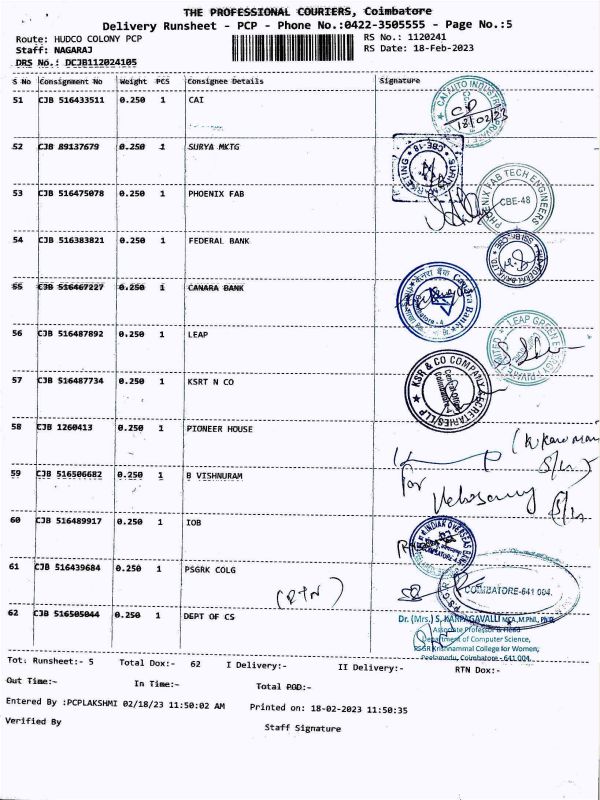 THE PROFESSIONAL COURIERS, Coimbatore
Delivery Runsheet - PCP - Phone No.:0422-3505555 - Page No.:5
Route: HUDCO COLONY PCP
RS No.: 1120241
Staff: NAGARAJ
RS Date: 18-Feb-2023
DRS No.: DCJB112024105
S No Consignment No Weight PCS Consignee Details Signature
51 CJB 516433511 0.250 1 CAI
18/02/23
52 CJB 89137679 0.250 1 SURYA MKTG
CBE-18
53 CJB 516475078 0.250 1 PHOENIX FAB
PHOENIX FAB TECH ENGINEERS
CBE-48
54 CJB 516383821 0.250 1 FEDERAL BANK
55 CJB 516467227 0.250 1 CANARA BANK
केनरा बैंक Canara Bank
56 CJB 516487892 0.250 1 LEAP
57 CJB 516487734 0.250 1 KSRT N CO
KSR & CO COMPANY SECRETARIES LLP
58 CJB 1260413 0.250 1 PIONEER HOUSE
59 CJB 516506682 0.250 1 B VISHNURAM
For
60 CJB 516489917 0.250 1 IOB
INDIAN OVERSEAS BANK
61 CJB 516439684 0.250 1 PSGRK COLG
COIMBATORE-641 004.
62 CJB 516505044 0.250 1 DEPT OF CS
Dr. (Mrs.) S. KARPAGAVALLI MCA.,M.Phil., Ph.D.
Associate Professor & Head
Department of Computer Science,
PSGR Krishnammal College for Women,
Peelamedu, Coimbatore - 641 004.
Tot: Runsheet:- 5 Total Dox:- 62 I Delivery:- II Delivery:- RTN Dox:-
Out Time:- In Time:- Total POD:-
Entered By :PCPLAKSHMI 02/18/23 11:50:02 AM Printed on: 18-02-2023 11:50:35
Verified By Staff Signature